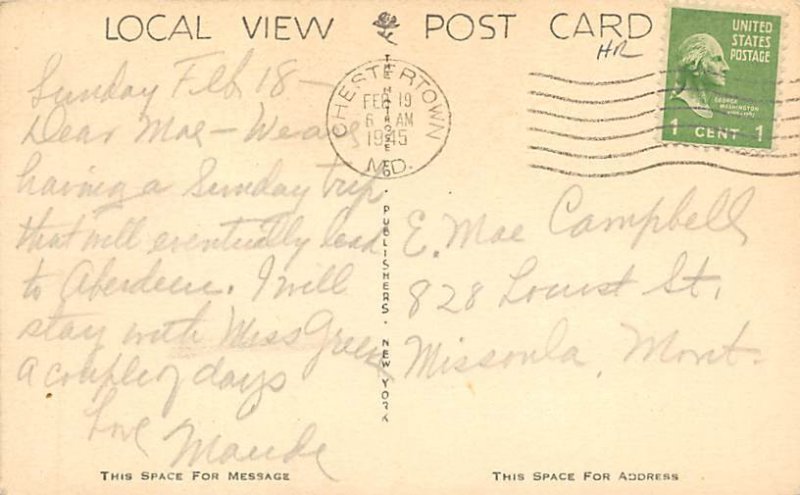 LOCAL VIEW POST CARD
HR
UNITED
STATES
POSTAGE
GEORGE
WASHINGTON
1 CENT 1
CHESTERTOWN
FEB 19
6 AM
1945
MD.
Sunday Feb 18 —
Dear Mae — We are
having a Sunday trip
that will eventually lead
to Aberdeen. I will
stay with Miss Green
a couple of days
Love
Maude
PUBLISHERS. NEW YORK
E. Mae Campbell
828 Locust St.
Missoula, Mont.
THIS SPACE FOR MESSAGE
THIS SPACE FOR ADDRESS